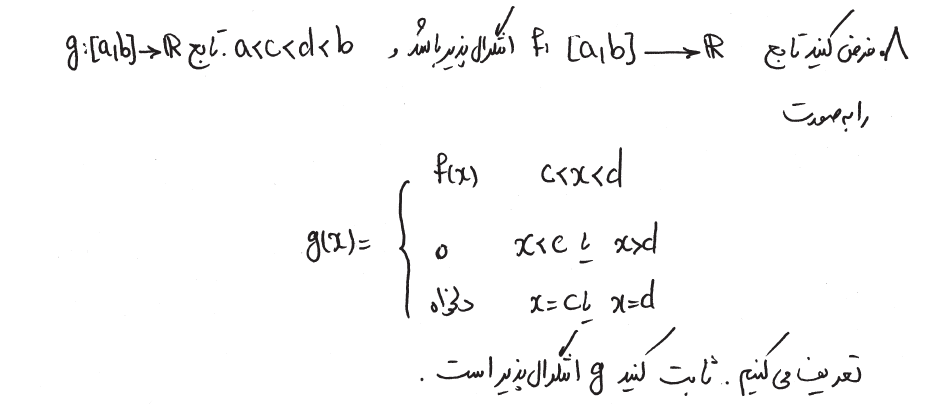 ۸. فرض کنید تابع f: [a,b] → ℝ انتگرال پذیر باشد و a<c<d<b. تابع g:[a,b]→ℝ
را به صورت
g(x)= { f(x) c<x<d
0 x<c یا x>d
دلخواه x=c یا x=d
تعریف می کنیم. ثابت کنید g انتگرال پذیر است.